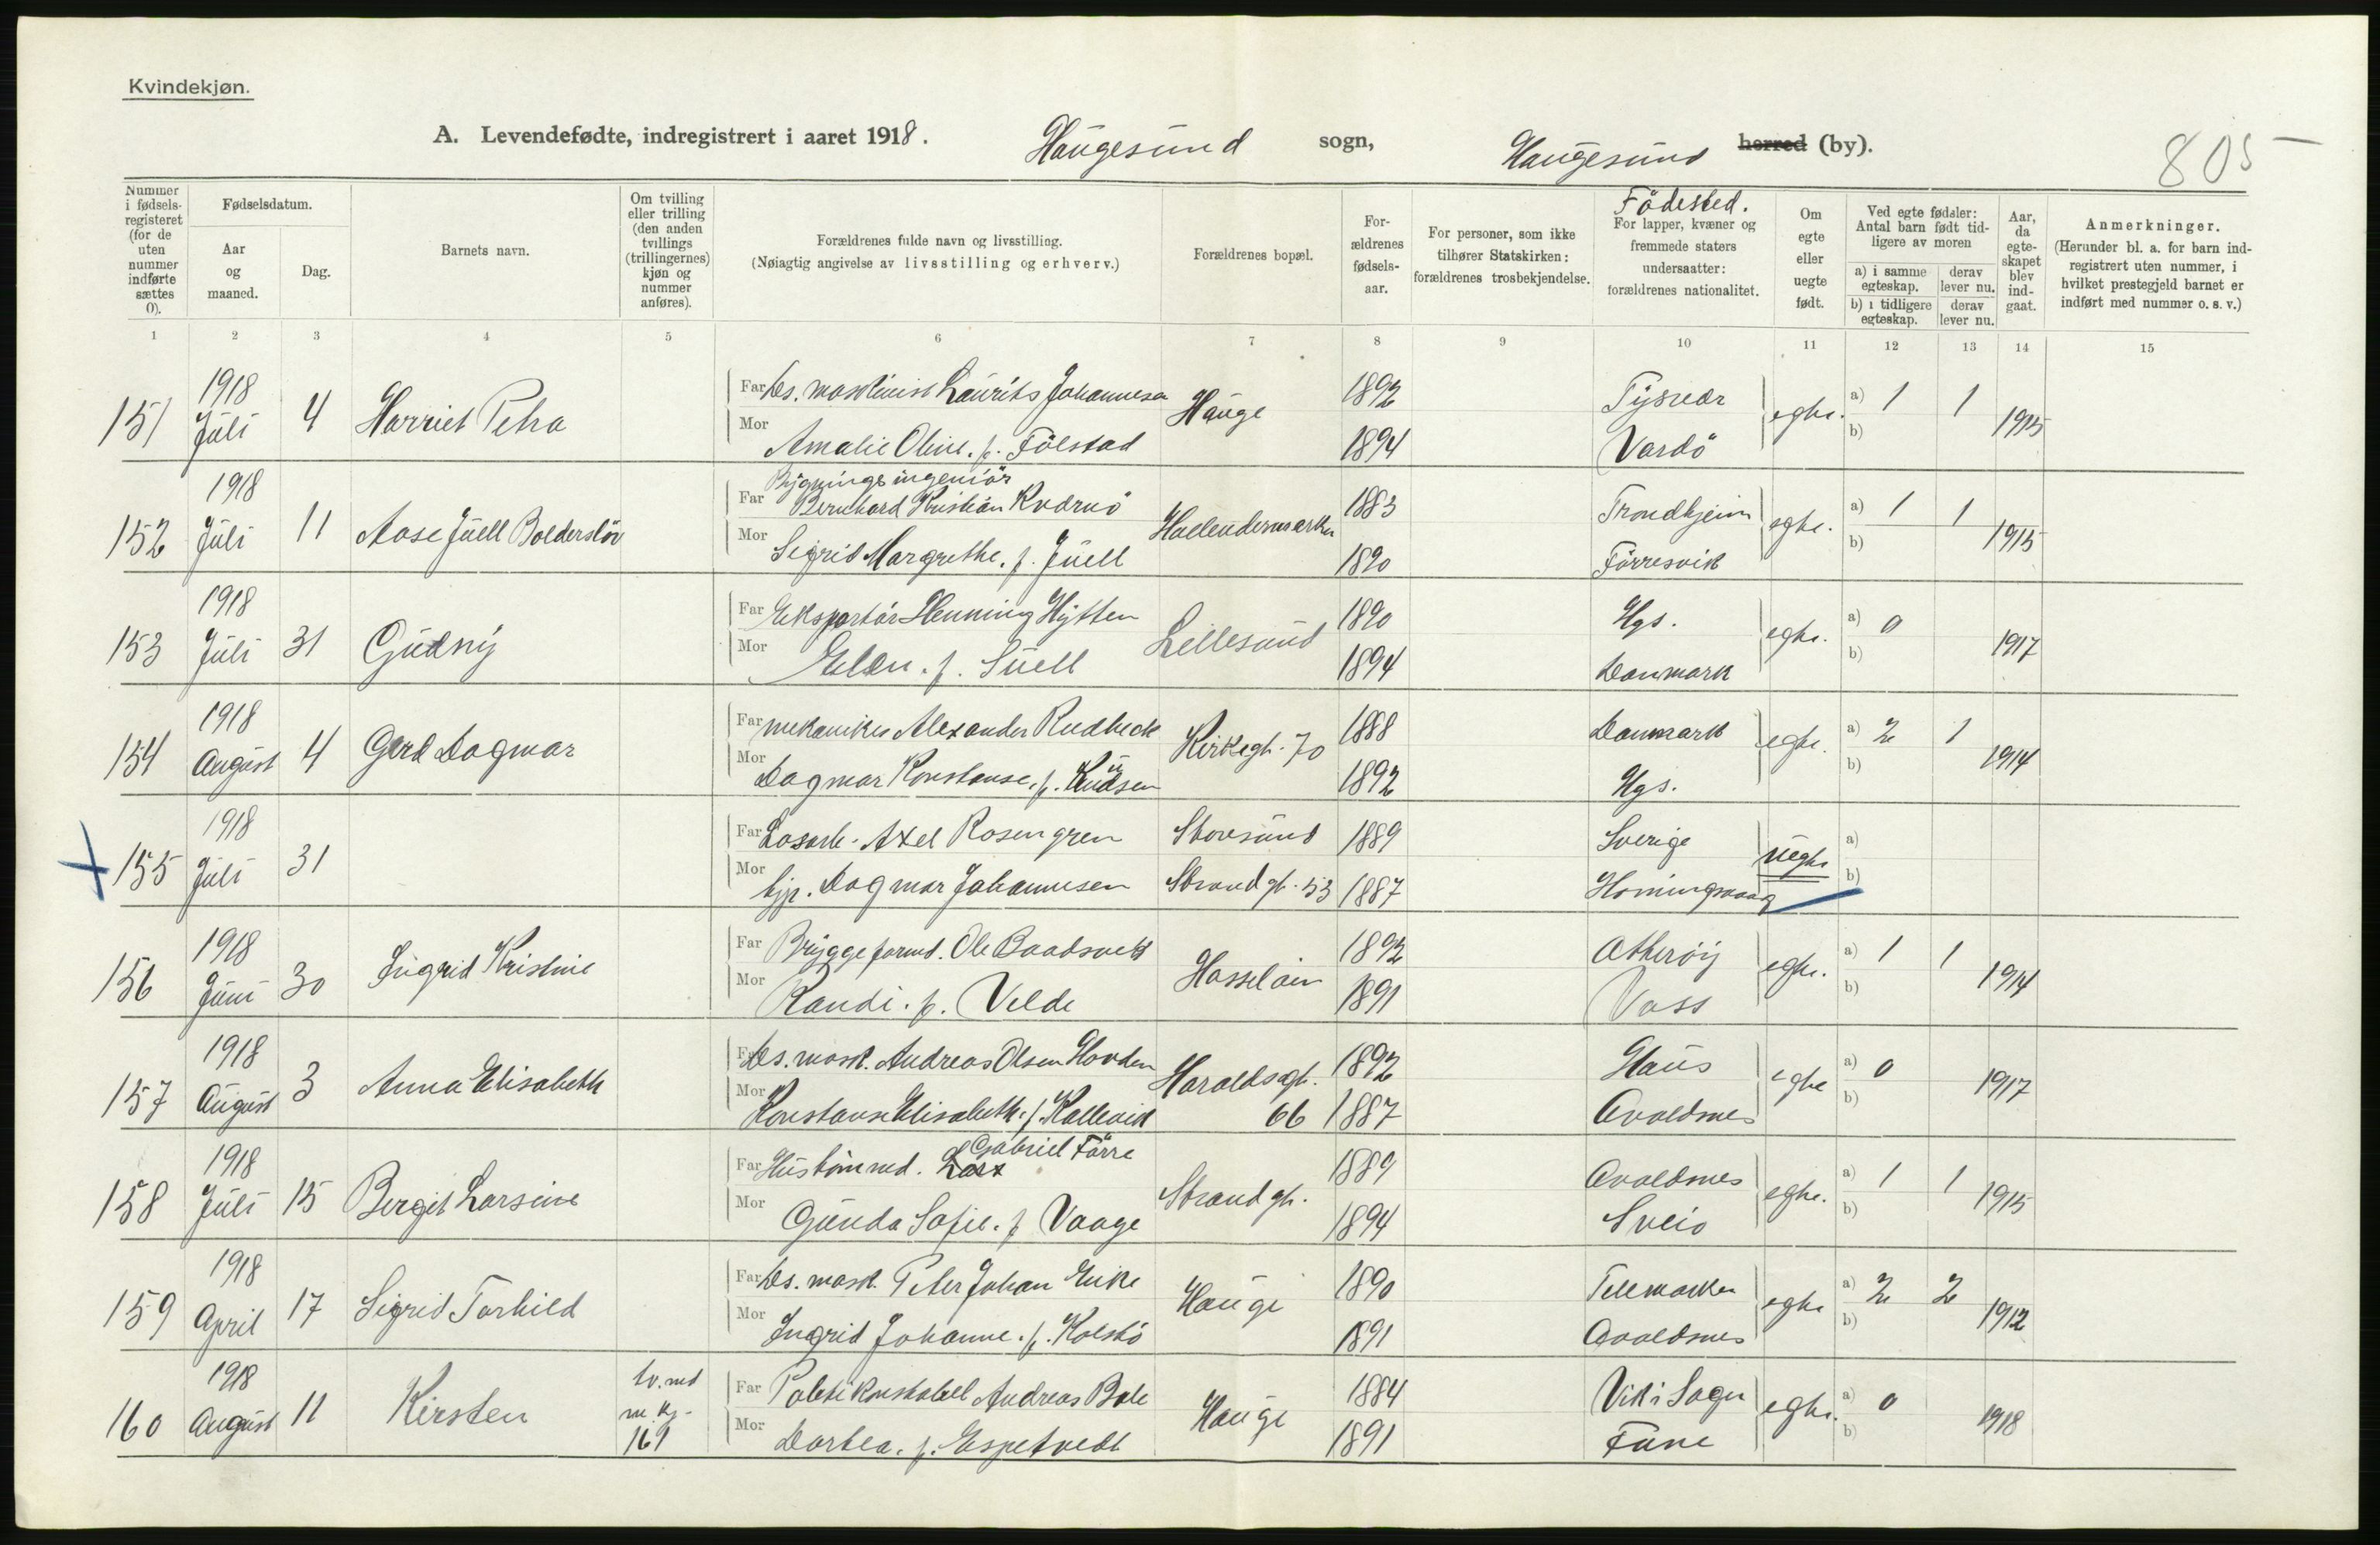 Kvindekjøn.
A. Levendefødte, indregistrert i aaret 1918. Haugesund sogn, Haugesund herred (by). 805
Nummer i fødselsregisteret (for de uten nummer indførte sættes 0).
Fødselsdatum.
Aar og maaned.
Dag.
Barnets navn.
Om tvilling eller trilling (den anden tvillings (trillingernes) kjøn og nummer anføres).
Forældrenes fulde navn og livsstilling.
(Nøiagtig angivelse av livsstilling og erhverv.)
Forældrenes bopæl.
Forældrenes fødselsaar.
For personer, som ikke tilhører Statskirken: forældrenes trosbekjendelse.
Födested.
For lapper, kvæner og fremmede staters undersaatter: forældrenes nationalitet.
Om egte eller uegte født.
Ved egte fødsler: Antal barn født tidligere av moren
a) i samme egteskap. derav lever nu.
b) i tidligere egteskap. derav lever nu.
Aar, da egteskapet blev indgaat.
Anmerkninger.
(Herunder bl. a. for barn indregistrert uten nummer, i hvilket prestegjeld barnet er indført med nummer o. s. v.)
1 2 3 4 5 6 7 8 9 10 11 12 13 14 15
151 1918 Juli 4 Harriet Petra Far Des. maskinist Laurits Johannesen Hauge 1892 Tysvær egte. a) 1 1 1915
Mor Amalie Oline. f. Fölstad 1894 Vardö b)
152 1918 Juli 11 Aase Juell Bolderslöv Bygningsingeniör
Far Bernhard Kristian Kvdrnö Hollendermarken 1883 Trondhjeim egte. a) 1 1 1915
Mor Sigrid Margrethe. f. Juell 1890 Förresvik b)
153 1918 Juli 31 Gudny Far Eksportör Henning Hytten Lillesund 1890 Hgs. egte. a) 0 1917
Mor Ellen. f. Suell 1894 Danmark b)
154 1918 August 4 Gerd Dagmar Far mekaniker Alexander Rudbeck Kirkegt. 70 1888 Danmark egte. a) 2 1 1914
Mor Dagmar Konstanse. f. Knudsen 1892 Hgs. b)
155 1918 Juli 31 Far Losarb. Axel Rosengren Storesund 1889 Sverige uegte a)
Mor hjp. Dagmar Johannesen Strandgt. 53 1887 Honingsvaag b)
156 1918 Juni 30 Ingrid Kristine Far Bryggeformd. Ole Baadsvik Hasseløen 1892 Atherøy egte. a) 1 1 1914
Mor Randi. f. Velde 1891 Voss b)
157 1918 August 3 Anna Elisabeth Far Des. mask. Andreas Olsen Hovden Haraldsgt. 66 1892 Haus egte a) 0 1917
Mor Konstanse Elisabeth. f. Kallevik 1887 Avaldsnes b)
158 1918 Juli 15 Bergit Larsine Far Hustömmed. Lars Gabriel Förre Strandgt. 1889 Avaldsnes egte. a) 1 1 1915
Mor Gunda Sofie. f Vaage 1894 Sveio b)
159 1918 April 17 Sigrid Torhild Far Des. mask. Peter Johan Eike Hauge 1890 Telemarken egte a) 2 2 1912
Mor Ingrid Johanne. f. Kolstö 1891 Avaldsnes b)
160 1918 August 11 Kirsten tv. med m. kj. 161 Far Politikonstabel Andreas Bole Hauge 1884 Vik i Sogn egte. a) 0 1918
Mor Dortea. f. Espetvedt 1891 Etne b)